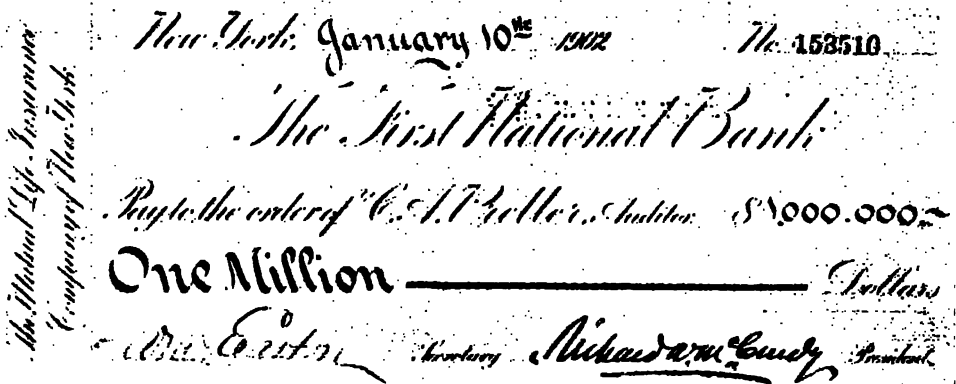 The Mutual Life Insurance
Company of New York
New York, January 10th 1902 No. 153510
The First National Bank
Pay to the order of C. A. Preller, Auditor $1,000,000.–
One Million Dollars
Wm. Easton Secretary Richard A. McCurdy President